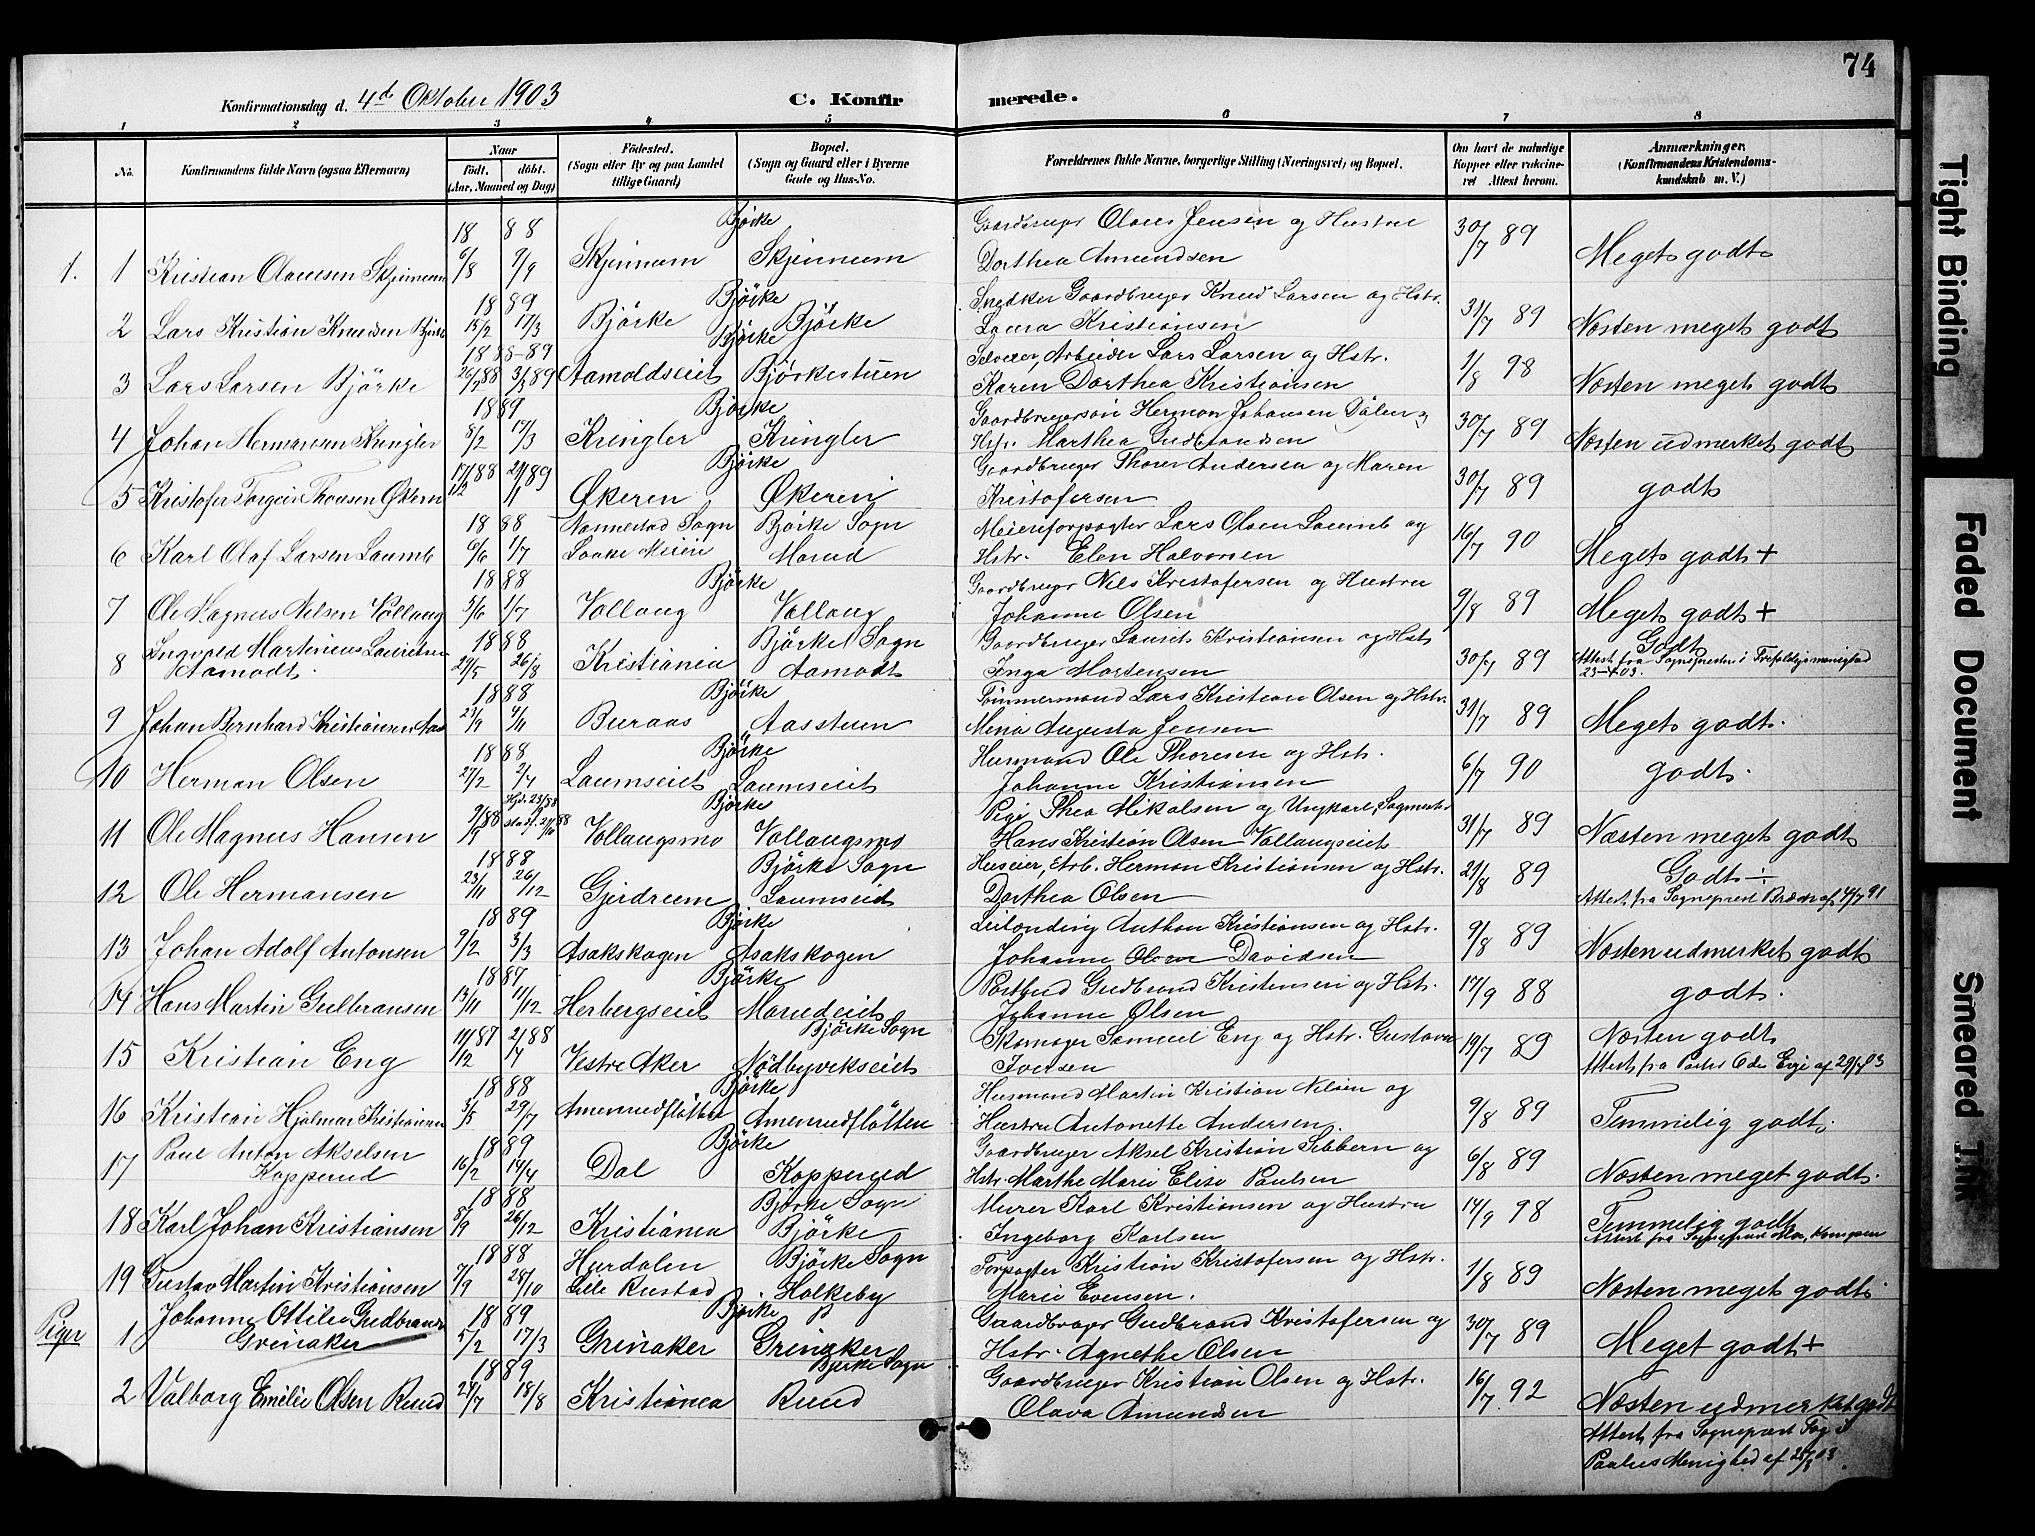 74
Konfirmationsdag d. 4d Oktober 1903 C. Konfirmerede.
1 2 3 4 5 6 7 8
No. Konfirmandens fulde Navn (ogsaa Efternavn) Naar födt. döbt. (Aar, Maaned og Dag) Födested. (Sogn eller By og paa Landet tillige Gaard) Bopæl. (Sogn og Gaard eller i Byerne Gade og Hus-No. Forældrenes fulde Navne, borgerlige Stilling (Næringsvei) og Bopæl. Om havt de naturlige Kopper eller vaccineret Attest herom. Anmærkninger. (Konfirmandens Kristendomskundskab m. V.)
18 88 Bjørke Gaardbruger Olaves Jensen og Hustru
1. 1 Kristian Olavesen Skjennum 6/8 9/9 Skjennum Skjennum Dorthea Amundsen 30/7 89 Meget godt
18 89 Bjørke Snedker Gaardbruger Knud Larsen og Hstr.
2 Lars Kristian Knudsen Bjørke 15/2 17/3 Bjørke Bjørke Laura Kristiansen 31/7 89 Næsten meget godt
1888-89 Bjørke Selveier, Arbeider Lars Larsen og Hstr.
3 Lars Larsen Bjørke 26/7 88 3/3 89 Aamoldseiet Bjørkestuen Karen Dorthea Kristiansen 1/8 98 Næsten meget godt
1889 Bjørke Gaardbrugersøn Herman Johansen Dalen og
4 Johan Hermansen Kringler 8/2 17/3 Kringler Kringler Hstr. Marthea Gudbrandsen 30/7 89 Næsten udmerket godt
Bjørke Gaardbruger Thorer Andersen og Maren
5 Kristofer Torgeir Thoresen Økern 17/12 88 21/1 89 Økeren Økeren Kristofersen 30/7 89 godt
18 88 Nannestad Sogn Bjørke Sogn Meieriforpagter Lars Olsen Laumb og
6 Karl Olaf Larsen Laumb 6/6 1/7 Laake Meieri Morud Hstr. Elen Halvorsen 16/7 90 Meget godt +
1888 Bjørke Gaardbruger Nils Kristofersen og Hustru
7 Ole Magnus Nilsen Vollaug 5/6 1/7 Vollaug Vollaug Johanne Olsen 9/8 89 Meget godt +
Ingvald Martinius Lauritsen 1888 Bjørke Sogn Gaardbruger Laurits Kristiansen og Hstr Godt
8 Aamodt. 29/5 26/8 Kristiania Aamodt Inga Mortensen 30/7 89 Attest fra Sognepresten i Trefoldigsmenighed
1888 Bjørke Tømmermand Lars Kristian Olsen og Hstr.
9 Johan Bernhard Kristiansen Aas 23/9 4/11 Buraas Aasstuen Mina Augusta Jensen 31/7 89 Meget godt.
1888 Bjørke Husmand Ole Thoresen og Hstr.
10 Herman Olsen 27/2 2/4 Laumseiet Laumseiet Johanne Kristiansen 6/7 90 godt.
Hjd. 23/9 88 Bjørke Pige Thea Mikalsen og Ungkarl, Sagmester
11 Ole Magnus Hansen 9/9 88 Vollaugsmo Vollaugsmo Hans Kristian Olsen Vollaugseiet 31/7 89 Næsten meget godt
1888 Bjørke Sogn Huseier, Arb. Herman Kristiansen og Hstr. Godt ÷
12 Ole Hermansen 23/11 26/12 Gjerdrum Laumseiet Dorthea Olsen 21/8 89 Attest fra Sogneprest
1889 Bjørke Leilending Anthon Kristiansen og Hstr.
13 Johan Adolf Antonsen 9/2 3/3 Asakskogen Asakskogen Johanne Olsen Davidsen 9/8 89 Næsten udmerket godt
1887 Bjørke Postbud Gudbrand Kristensen og Hstr.
14 Hans Martin Gulbransen 13/11 11/12 Herbergseiet Morudeiet Johanne Olsen 17/9 88 godt.
Bjørke Sogn Skomager Samuel Eng og Hstr. Gustava Næsten godt
15 Kristian Eng 11/12 87 2/4 88 Vestre Aker Nødbyvekseiet Iversen 19/7 89 Attest fra Pastor
1888 Bjørke Husmand Martin Kristian Nilsen og
16 Kristian Hjalmar Kristiansen 3/5 29/7 Amerudfløtten Amerudfløtten Hustru Antonette Andersen. 9/8 89 Temmelig godt.
Paul Anton Akselsen 1889 Bjørke Gaardbruger Aksel Kristian Sebbern og
17 Kopperud 16/2 14/4 Dal Kopperud Hstr. Marthe Marie Elise Paulsen 6/8 89 Næsten meget godt.
1888 Bjørke Sogn Murer Karl Kristiansen og Hustru
18 Karl Johan Kristiansen 8/9 26/12 Kristiania Bjørke Ingeborg Karlsen 14/9 98 Temmelig godt
1888 Hurdalen Bjørke Sogn Forpagter Kristian Kristofersen og Hstr.
19 Gustav Martin Kristiansen 7/9 28/10 Lille Rustad Holkeby Marie Evensen. 1/8 89 Næsten meget godt.
Johanne Ottilie Gudbrands 1889 Bjørke Gaardbruger Gudbrand Kristofersen og
Piger 1 Grinaker 5/2 17/3 Grinaker Grinaker Hstr. Agnethe Olsen 30/7 89 Meget godt +
1889 Bjørke Sogn Gaardbruger Kristian Olsen og Hstr.
2 Valborg Emilie Olsen Ruud 24/7 18/8 Kristiania Ruud Olava Amundsen 16/7 92 Næsten udmerket godt
Attest fra Sogneprest
Paulus Menighed af
Tight Binding
Faded Document
Smeared Ink